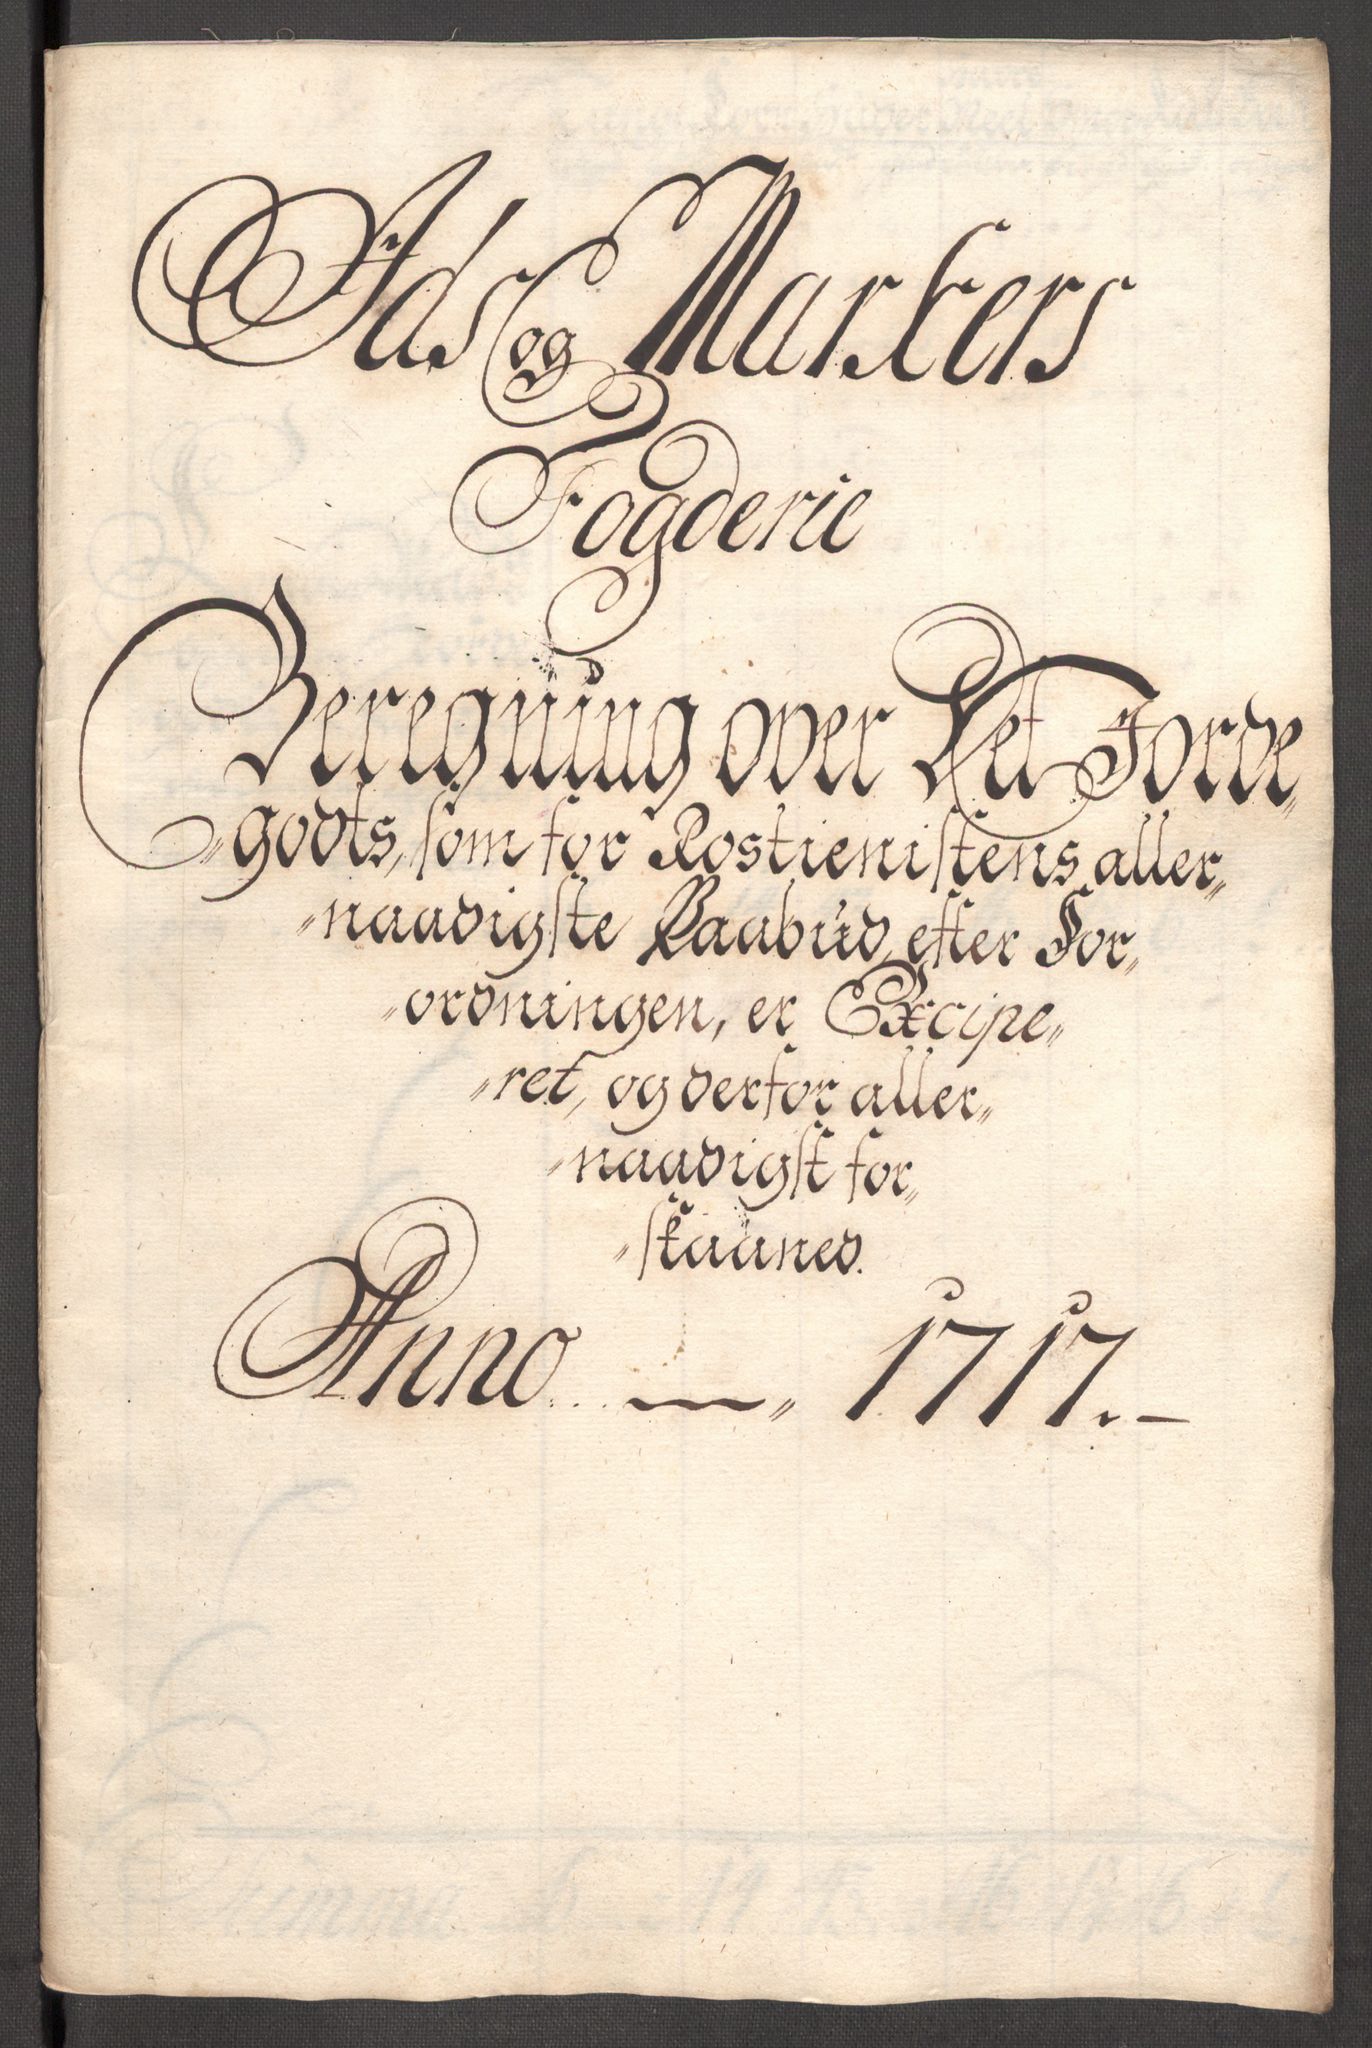 Ids og Markers
Fogderie
Beregning over Det Jorde„
„godts, som for Rostienistens aller„
„naadigste Paabud, efter For„
„ordningen, er Excipe„
„ret, og derfor aller„
„naadigst for„
„skaaned.
Anno. — „ 1717. —